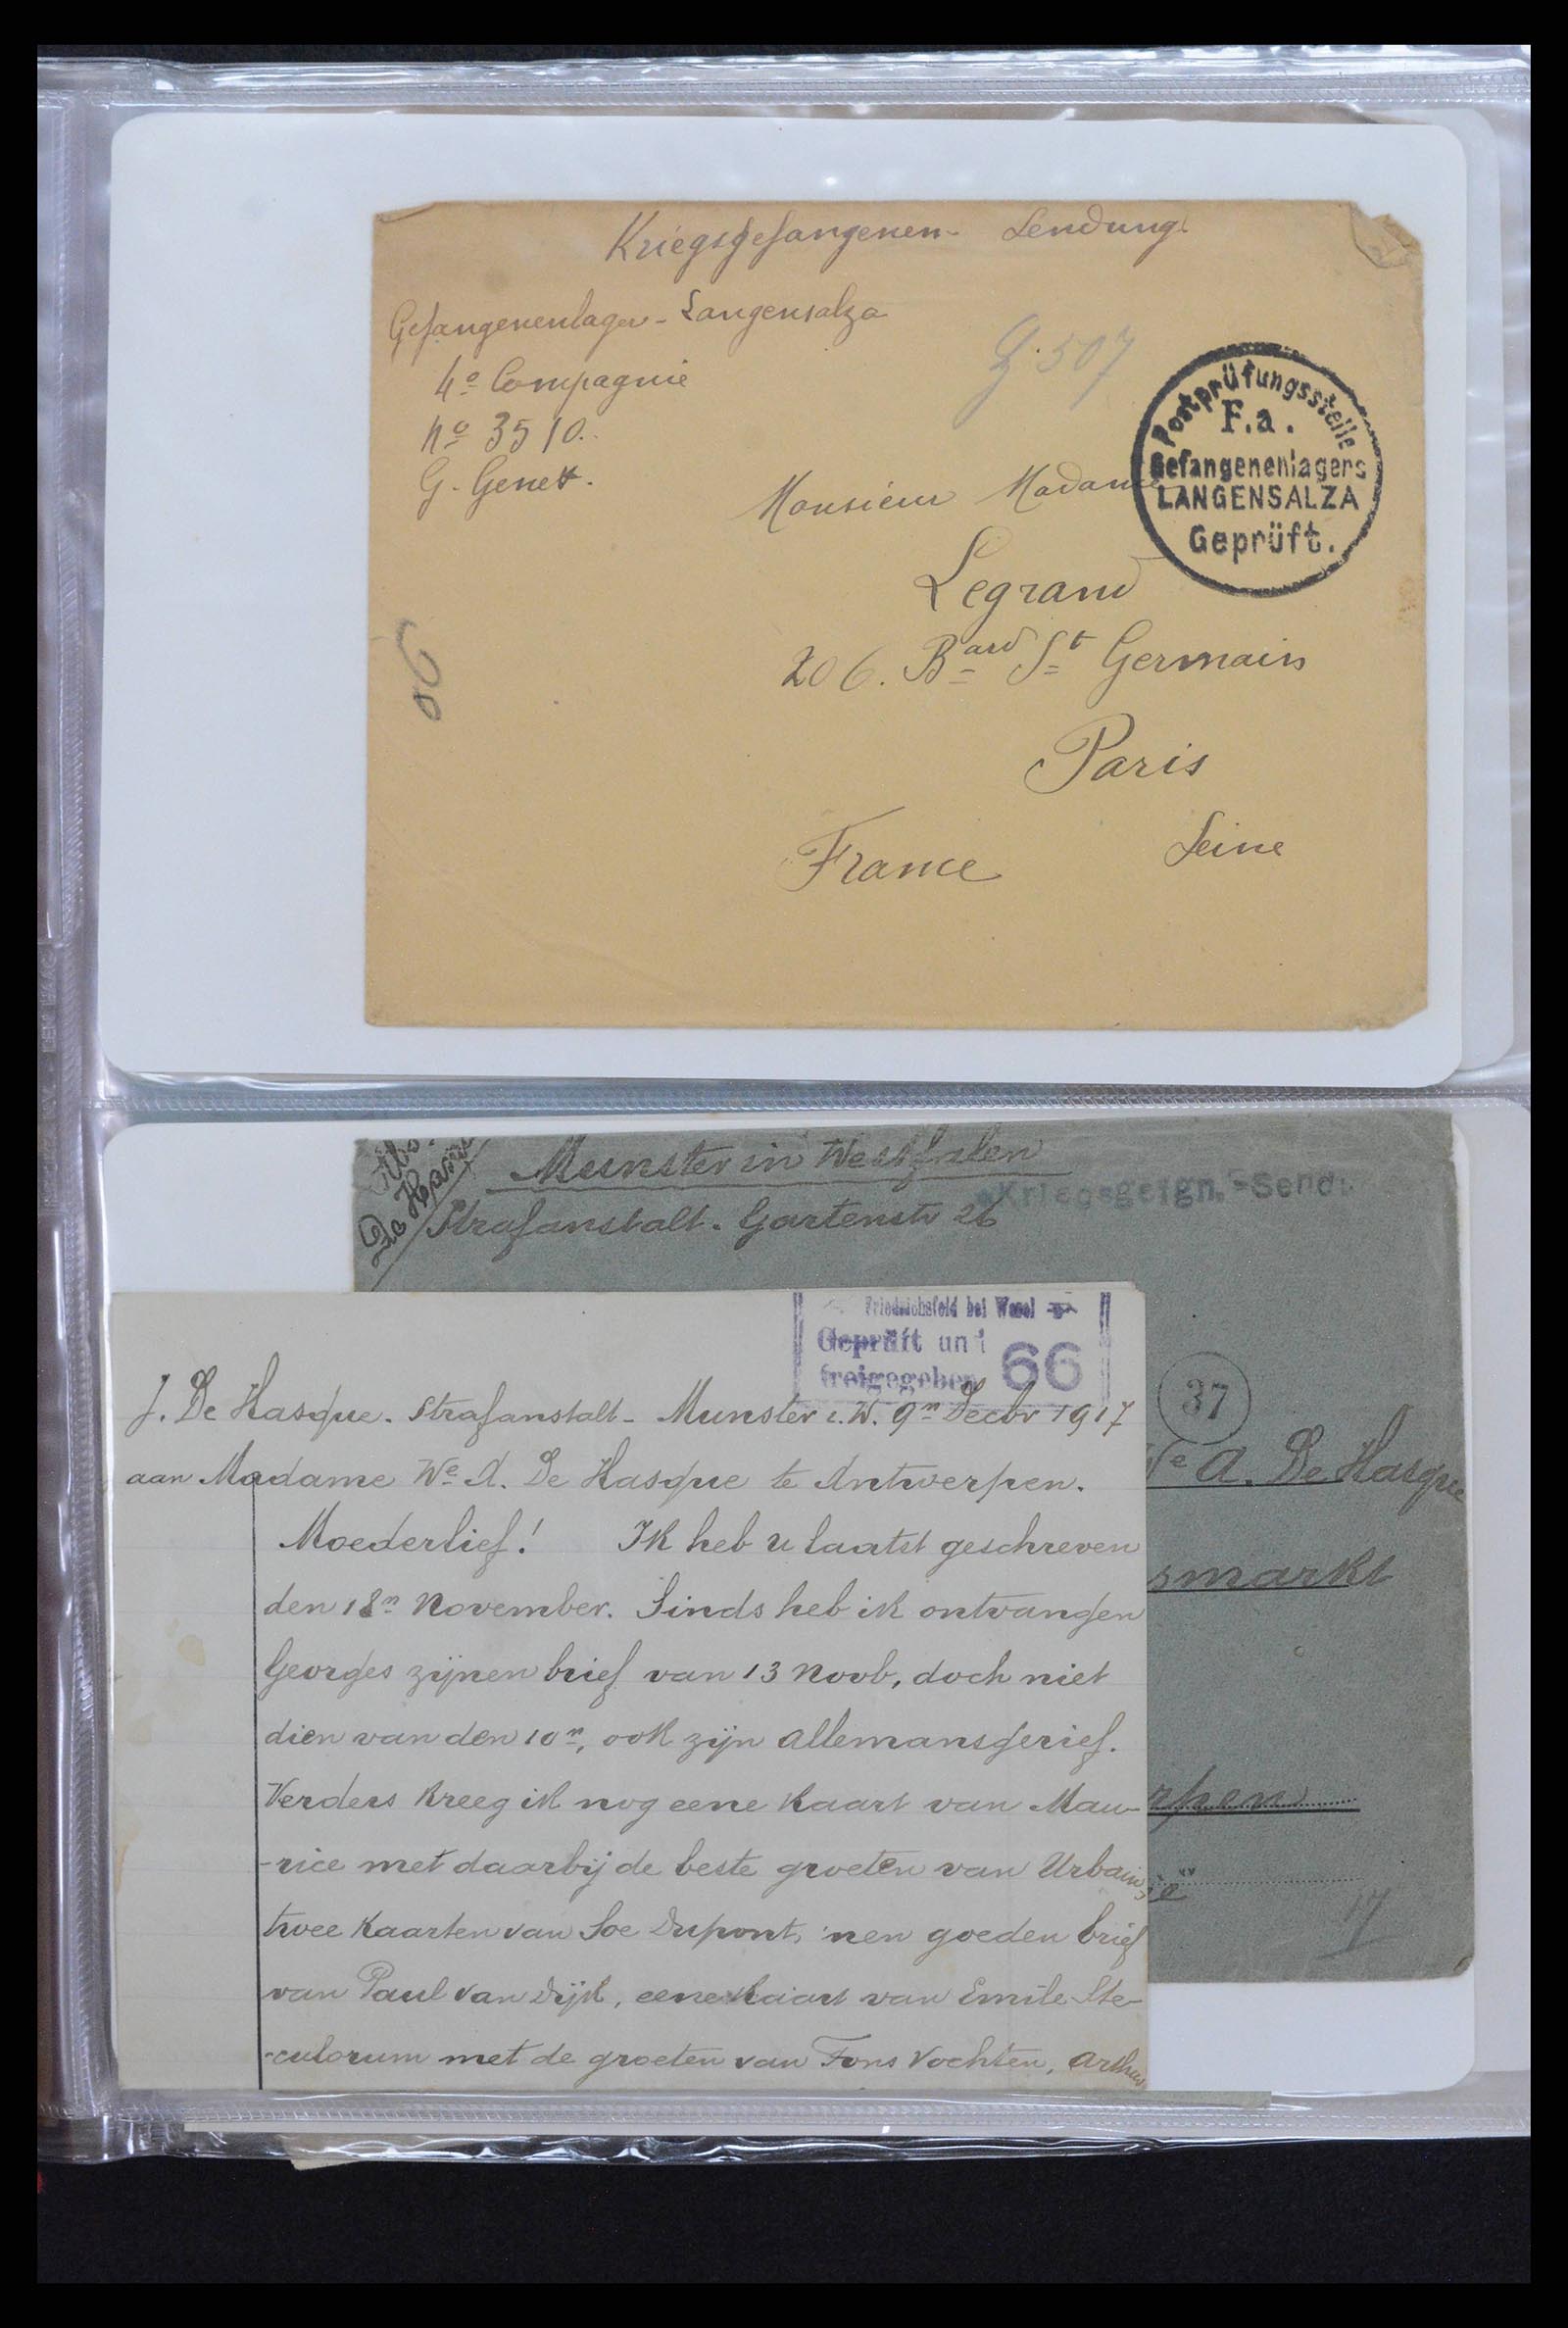 Kriegsgefangenen- Sendung.
Gefangenenlager - Langensalza
4º Compagnie
nº 3510.
G. Genet.
507
Postprüfungsstelle
F.a.
Gefangenenlagers
LANGENSALZA
Geprüft.
Monsieur Madame
Legrand
206. Bard St Germain
Paris
Seine
France
Munster in Westfalen
Strafanstalt. Gartenstr 26
Kriegsgefgn.-Send.
De Hasque
37
We A. De Hasque
smarkt
rpen
ië
17
Friedrichsfeld bei Wesel
Geprüft und
freigegeben
66
J. De Hasque. Strafanstalt - Munster i. W. 9n Decbr 1917
aan Madame We A. De Hasque te Antwerpen.
Moederlief! Ik heb u laatst geschreven
den 18n November. Sinds heb ik ontvangen
Georges zijnen brief van 13 Novb, doch niet
dien van den 10n, ook zijn allemansgerief.
Verders kreeg ik nog eene kaart van Mau-
-rice met daarbij de beste groeten van Urbain,
twee kaarten van Soe Dupont, 'nen goeden brief
van Paul van Dijk, eene kaart van Emile Ste-
-culorum met de groeten van Fons Vochten, Arthur